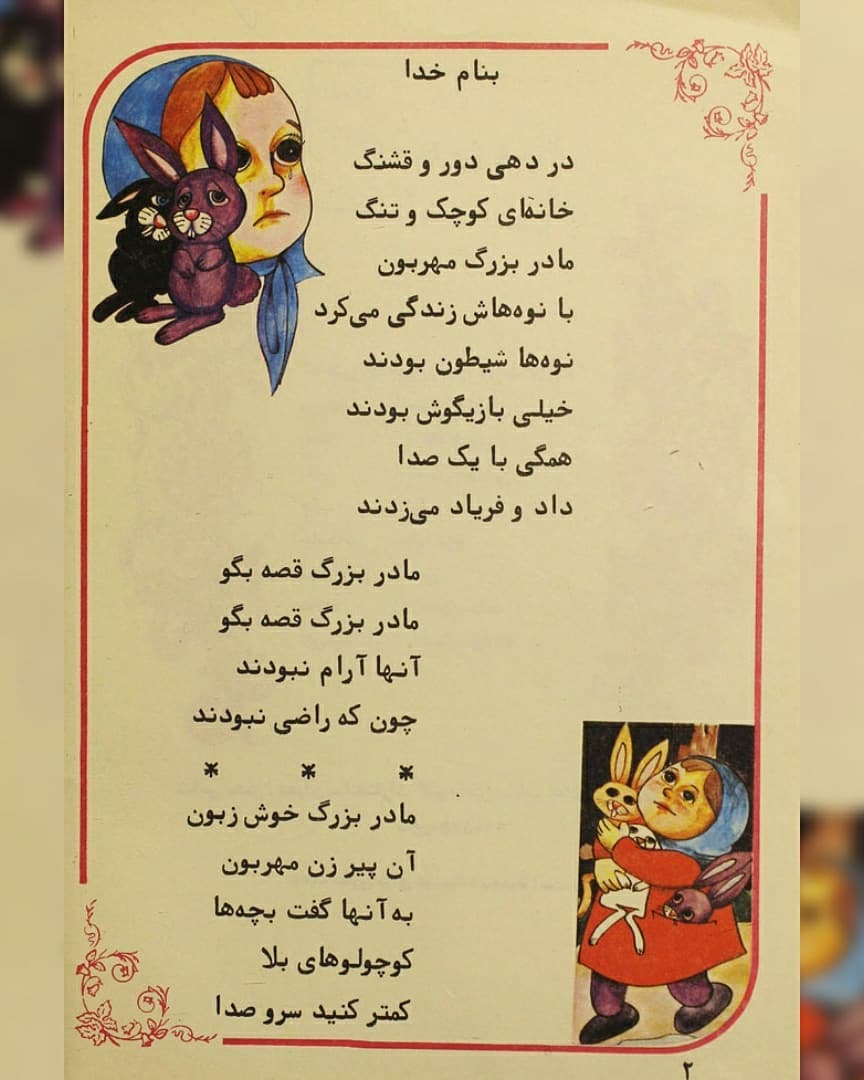 بنام خدا
در دهی دور و قشنگ
خانه‌ای کوچک و تنگ
مادر بزرگ مهربون
با نوه‌هاش زندگی می‌کرد
نوه‌ها شیطون بودند
خیلی بازیگوش بودند
همگی با یک صدا
داد و فریاد می‌زدند
مادر بزرگ قصه بگو
مادر بزرگ قصه بگو
آنها آرام نبودند
چون که راضی نبودند
* * *
مادر بزرگ خوش زبون
آن پیر زن مهربون
به آنها گفت بچه‌ها
کوچولوهای بلا
کمتر کنید سرو صدا
۲